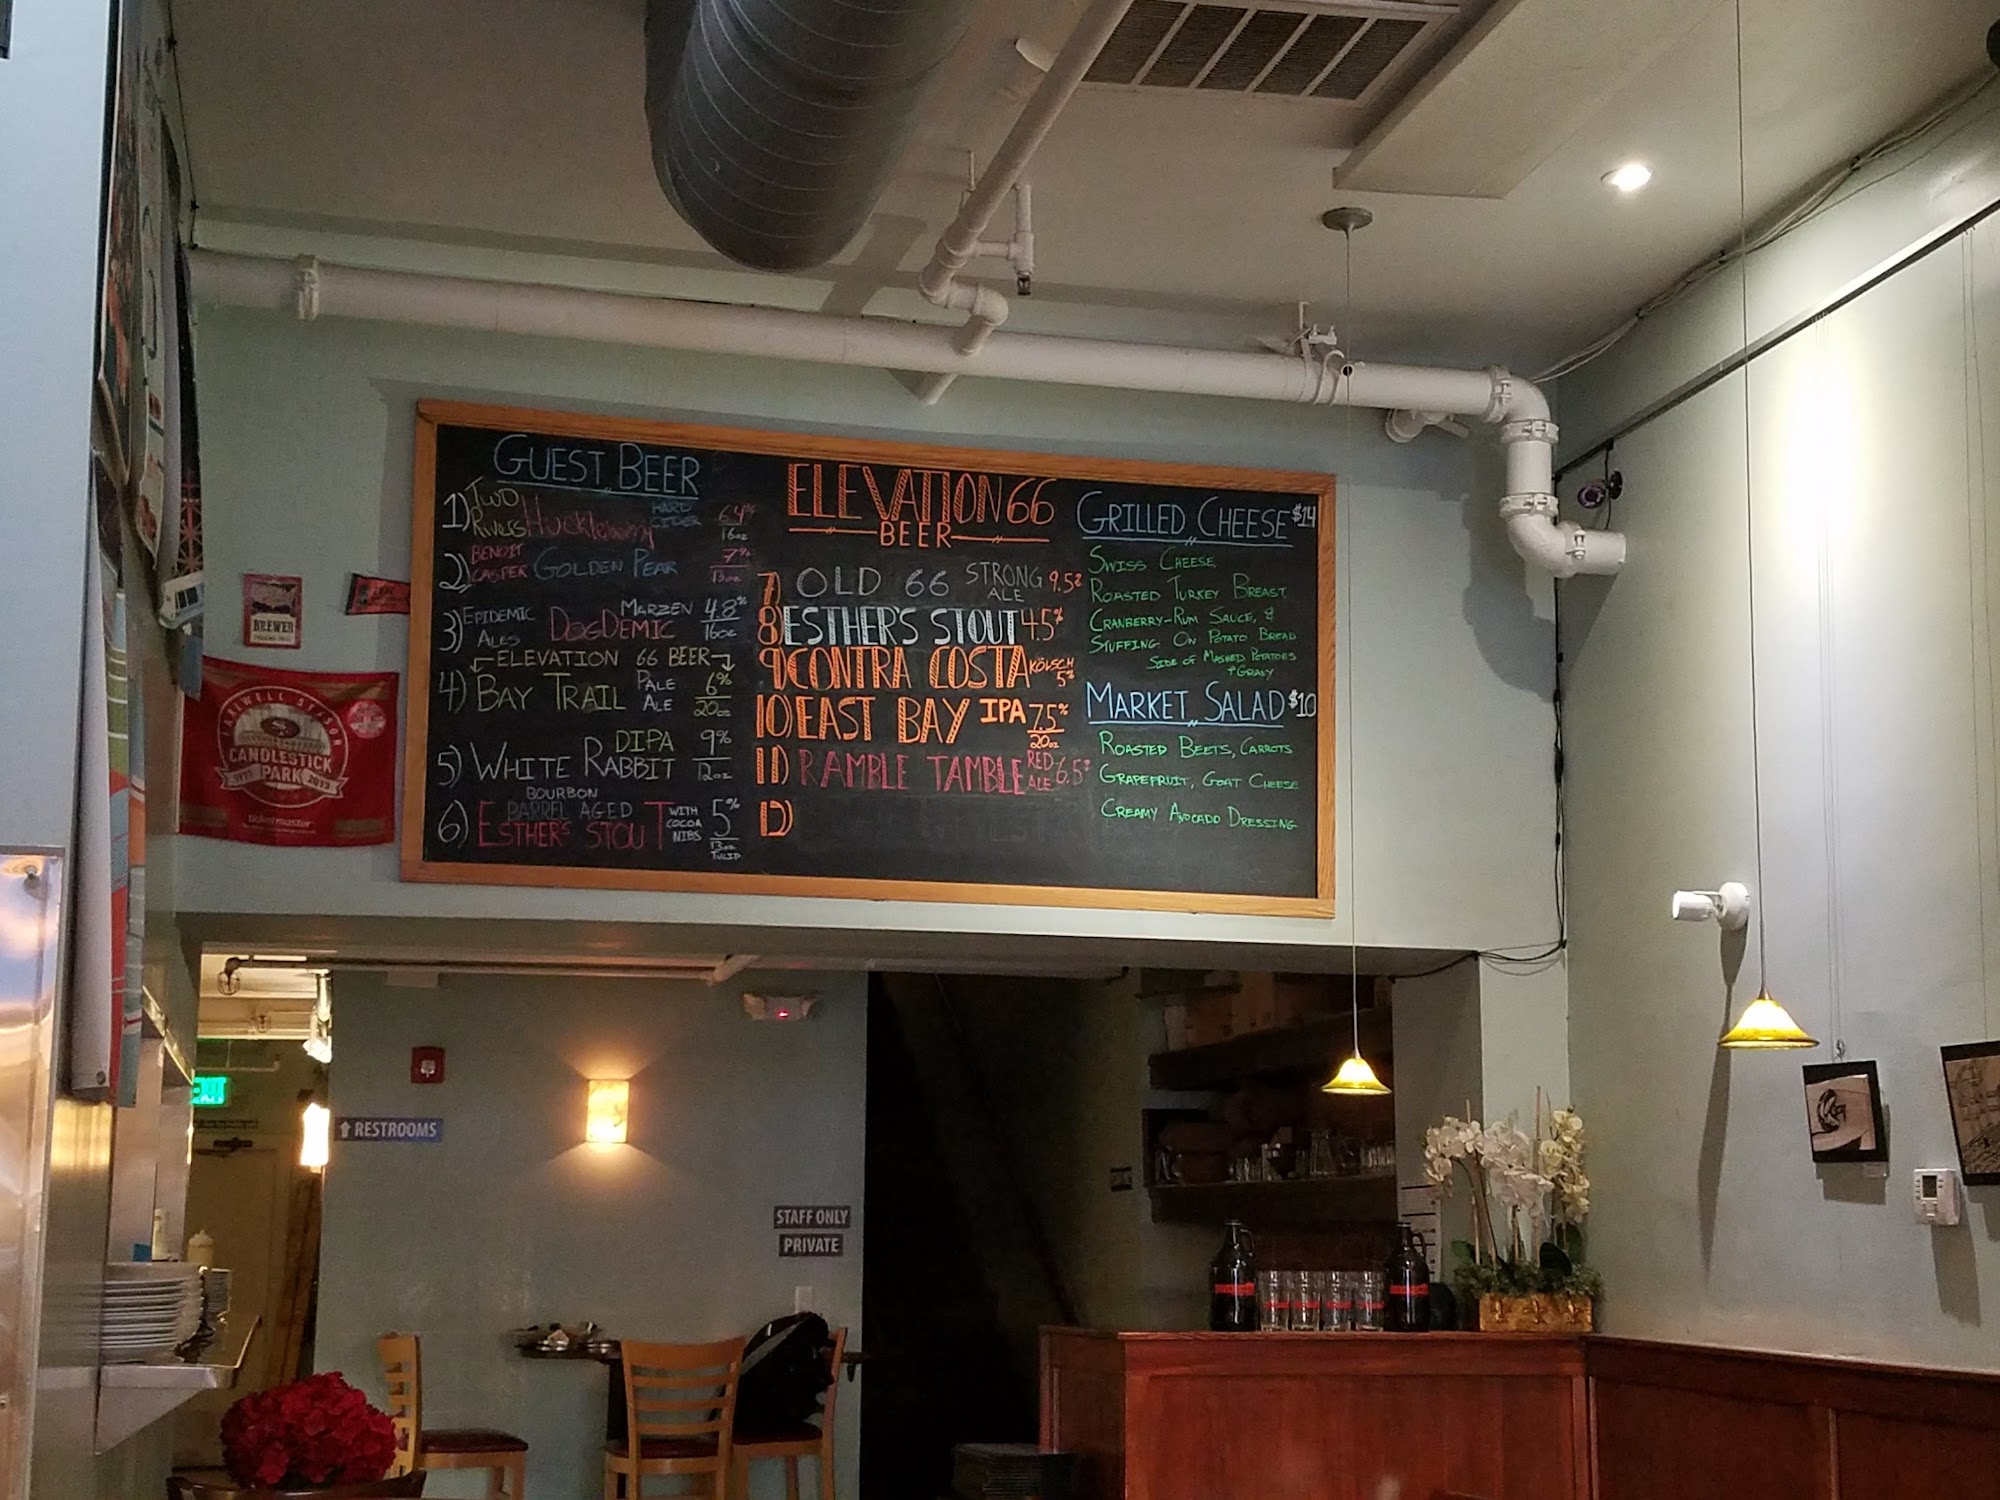 GUEST BEER
1) TWO RIVERS Huckleberry HARD CIDER 6.4% 16oz
2) BENOIT CASPER GOLDEN PEAR 7% 13oz
3) EPIDEMIC ALES DOGDEMIC MARZEN 4.8% 16oz
ELEVATION 66 BEER
4) BAY TRAIL PALE ALE 6% 20oz
5) WHITE RABBIT DIPA 9% 12oz
6) BOURBON BARREL AGED ESTHER'S STOUT WITH COCOA NIBS 5% 13oz TULIP
ELEVATION 66
BEER
7) OLD 66 STRONG ALE 9.5%
8) ESTHER'S STOUT 4.5%
9) CONTRA COSTA KÖLSCH 5%
10) EAST BAY IPA 7.5% 20oz
11) RAMBLE TAMBLE RED ALE 6.5%
12)
GRILLED CHEESE $14
SWISS CHEESE,
ROASTED TURKEY BREAST,
CRANBERRY-RUM SAUCE, &
STUFFING ON POTATO BREAD
SIDE OF MASHED POTATOES
+ GRAVY
MARKET SALAD $10
ROASTED BEETS, CARROTS
GRAPEFRUIT, GOAT CHEESE
CREAMY AVOCADO DRESSING
BREWER
FAREWELL SEASON
CANDLESTICK
1971 PARK 2013
ticketmaster
EXIT
RESTROOMS
STAFF ONLY
PRIVATE